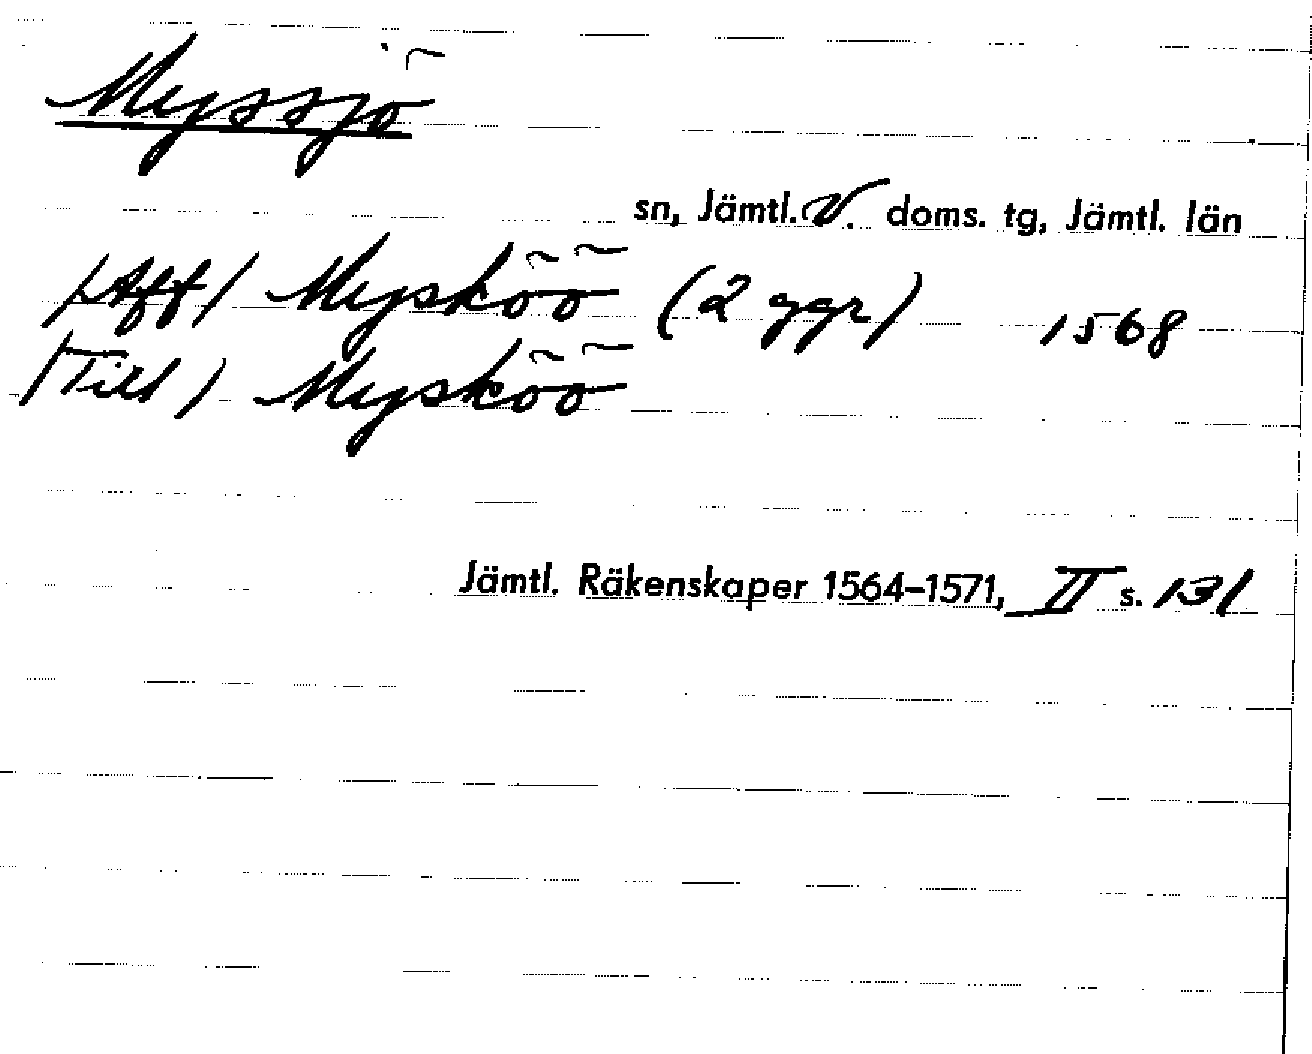 Myssjö
sn, Jämtl. V. doms. tg, Jämtl. län
/Aff/ Mysköö (2 ggr) 1568
/Till/ Mysköö
Jämtl. Räkenskaper 1564–1571, II s. 131